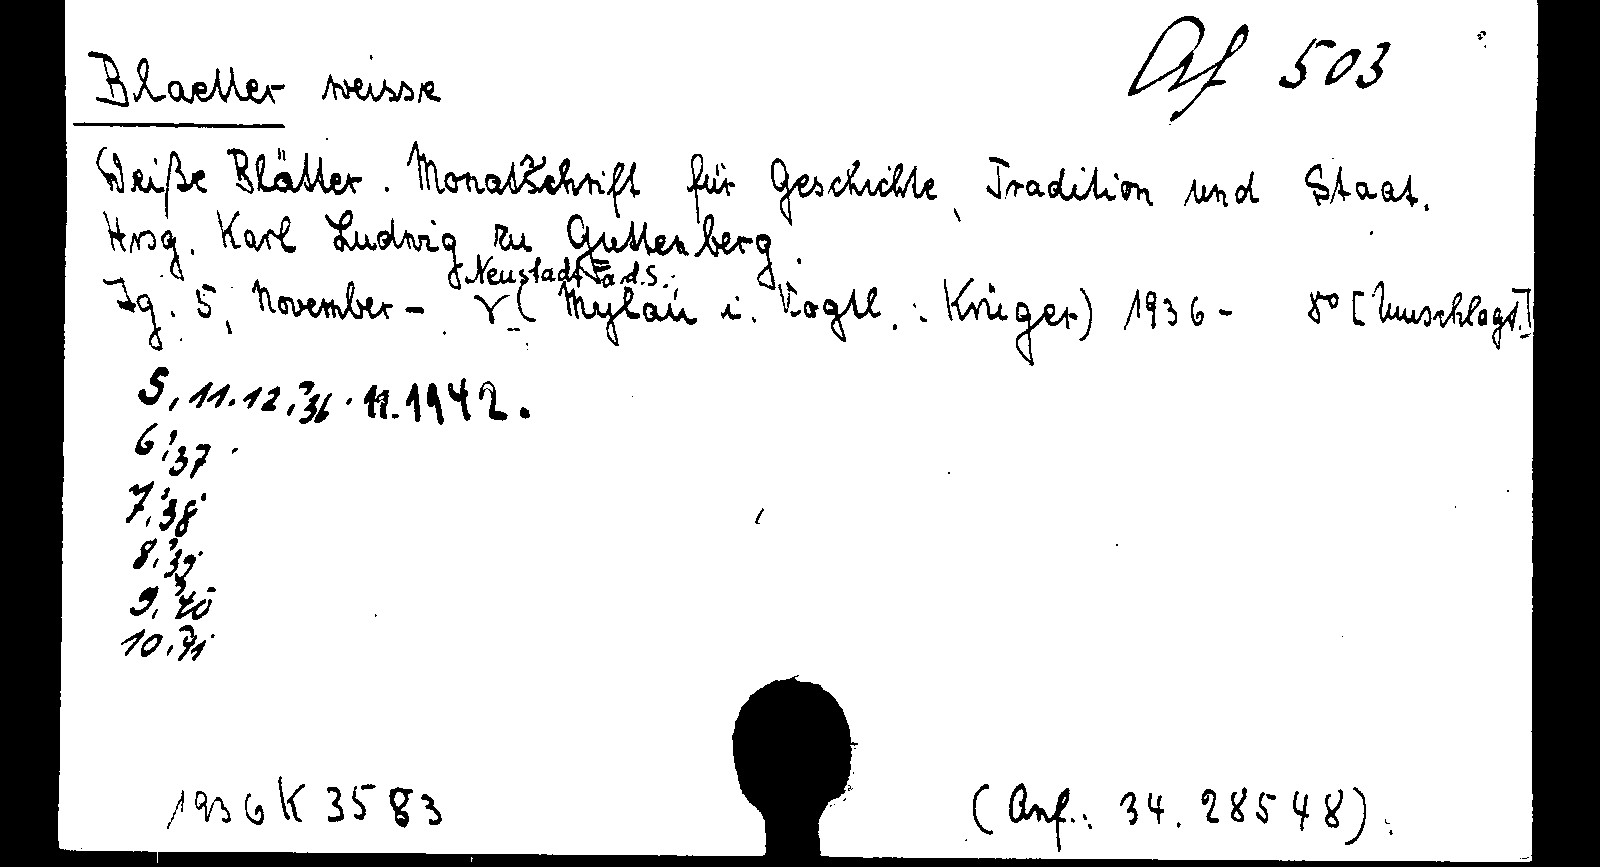 Af 503
Blaetter weisse
Weiße Blätter. Monatsschrift für Geschichte, Tradition und Staat.
Hrsg. Karl Ludwig zu Guttenberg.
Neustadt a.d.S.:
Jg. 5, November – (Mylau i. Vogtl.: Krüger) 1936 – 8° [Umschlagt.]
5, 11.12,'36. 11.1942.
6,'37
7,'38
8,'39
9,'40
10,'41
1936 K 3583
(Anf.: 34. 28548).